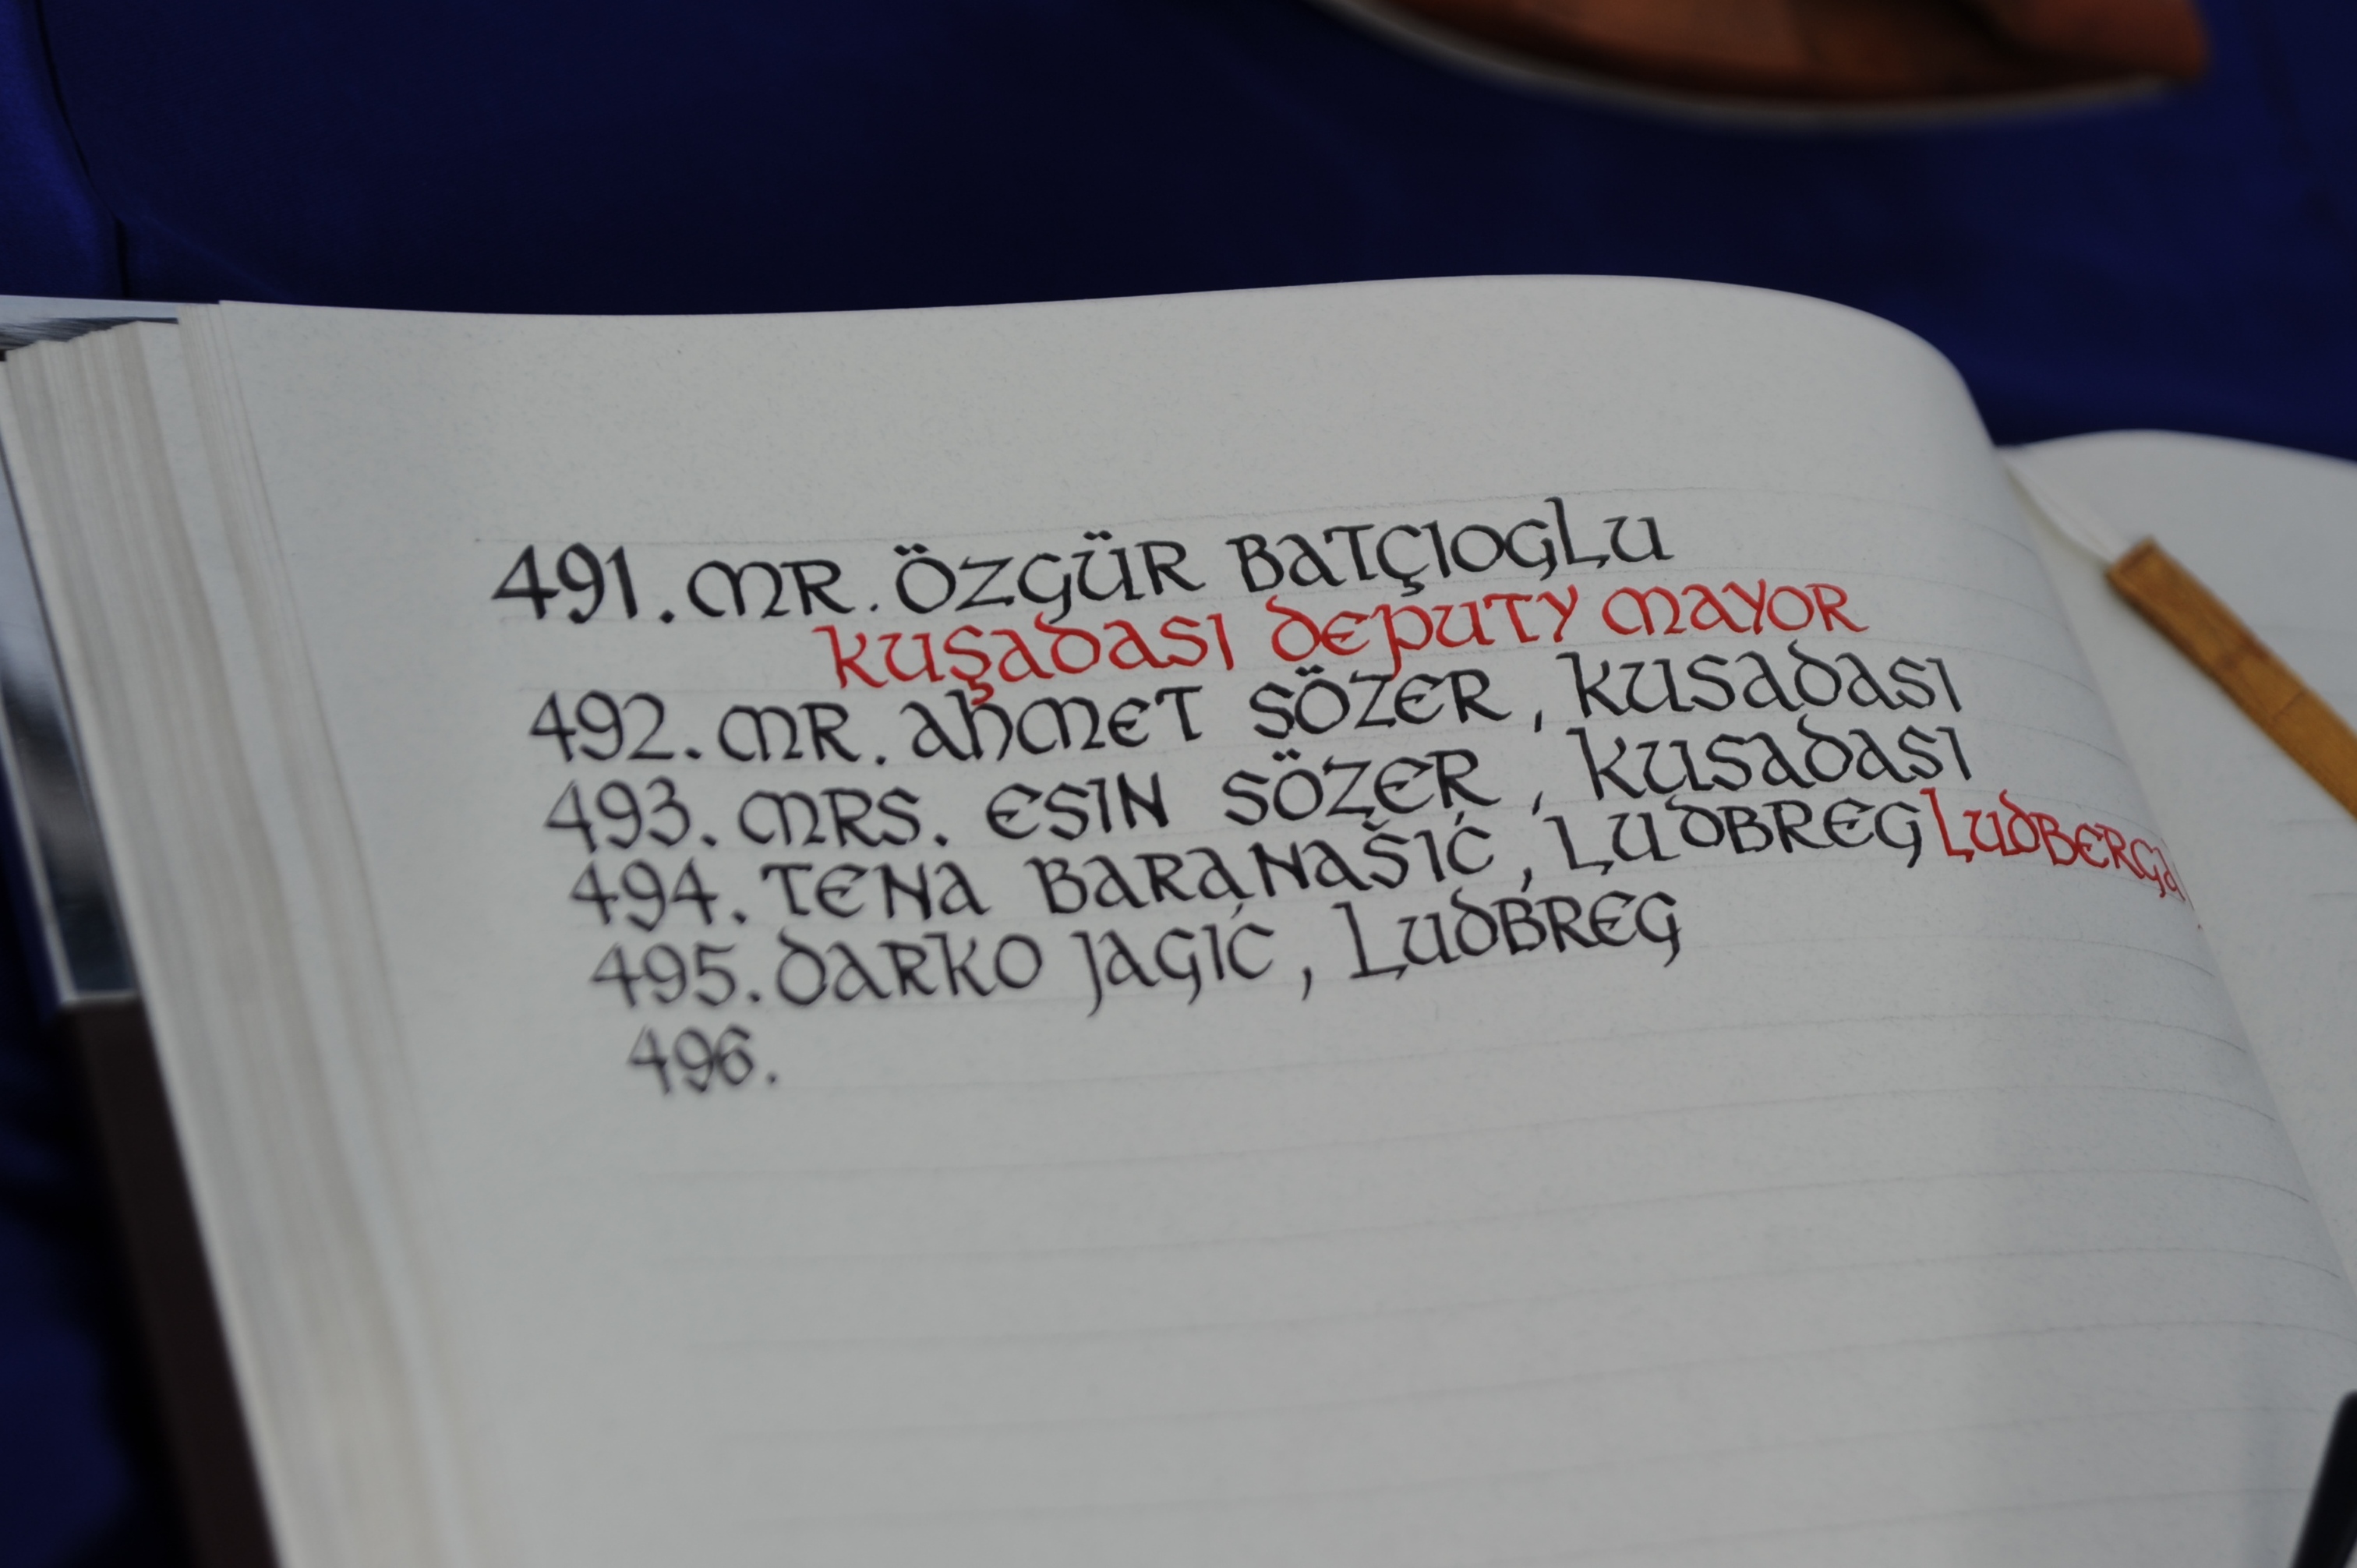 491. MR. ÖZGÜR BATÇIOGLU
KUŞADASI DEPUTY MAYOR
492. MR. AHMET SÖZER, KUSADASI
493. MRS. ESIN SÖZER, KUSADASI
494. TENA BARANAŠIĆ, LUDBREG LUDBERGA
495. DARKO JAGIĆ, LUDBREG
496.